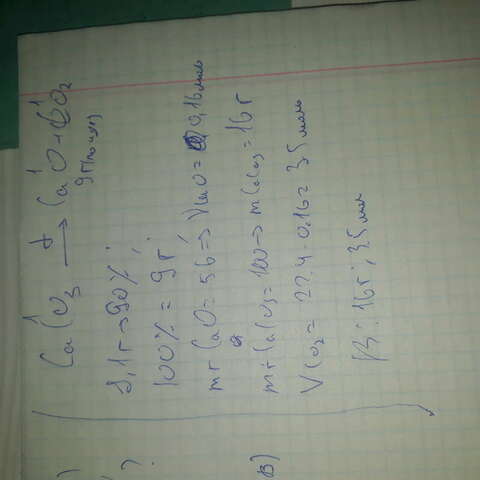 )
?
в)
CaCO3 t→ CaO + CO2
9г(теор)
8,1г → 90%;
100% = 9г;
mr CaO = 56 => VCaO = 0,16моль
mr CaCO3 = 100 -> mCaCO3 = 16г
VCO2 = 22.4 · 0.16 = 3,5моль
В: 16г; 3,5мл